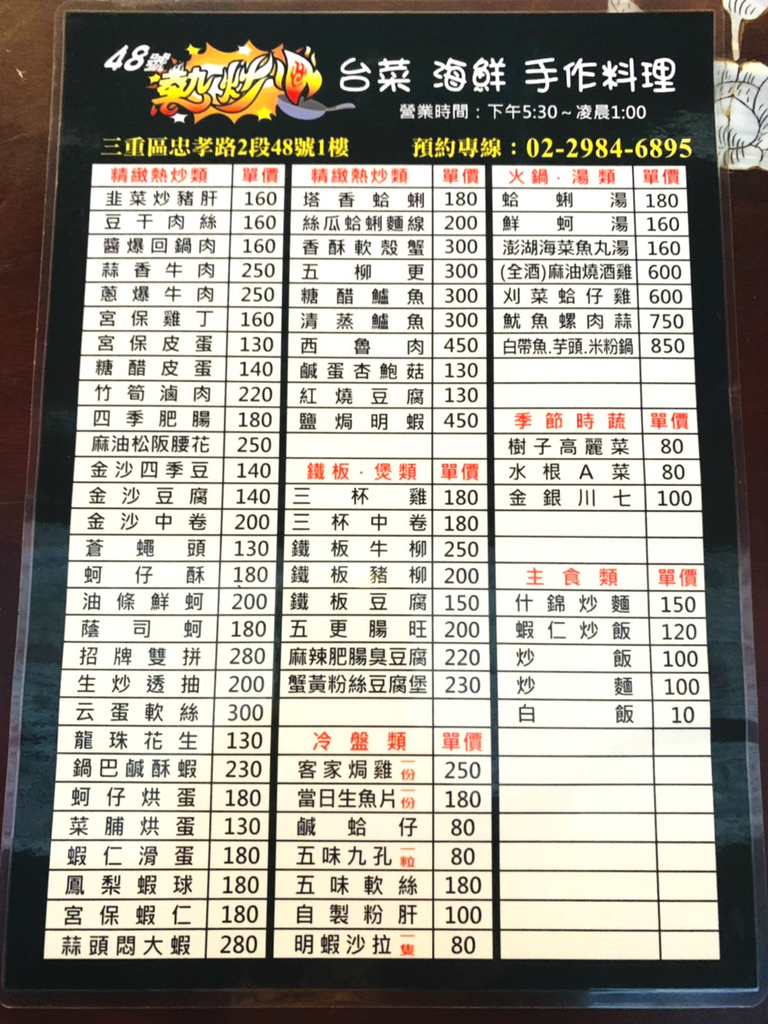 48號
熱炒
台菜 海鮮 手作料理
營業時間：下午5:30～凌晨1:00
三重區忠孝路2段48號1樓 預約專線：02-2984-6895
精緻熱炒類 單價
韭菜炒豬肝 160
豆干肉絲 160
醬爆回鍋肉 160
蒜香牛肉 250
蔥爆牛肉 250
宮保雞丁 160
宮保皮蛋 130
糖醋皮蛋 140
竹筍滷肉 220
四季肥腸 180
麻油松阪腰花 250
金沙四季豆 140
金沙豆腐 140
金沙中卷 200
蒼蠅頭 130
蚵仔酥 180
油條鮮蚵 200
蔭司蚵 180
招牌雙拼 280
生炒透抽 200
云蛋軟絲 300
龍珠花生 130
鍋巴鹹酥蝦 230
蚵仔烘蛋 180
菜脯烘蛋 130
蝦仁滑蛋 180
鳳梨蝦球 180
宮保蝦仁 180
蒜頭悶大蝦 280
精緻熱炒類 單價
塔香蛤蜊 180
絲瓜蛤蜊麵線 200
香酥軟殼蟹 300
五柳更 300
糖醋鱸魚 300
清蒸鱸魚 300
西魯肉 450
鹹蛋杏鮑菇 130
紅燒豆腐 130
鹽焗明蝦 450
鐵板·煲類 單價
三杯雞 180
三杯中卷 180
鐵板牛柳 250
鐵板豬柳 200
鐵板豆腐 150
五更腸旺 200
麻辣肥腸臭豆腐 220
蟹黃粉絲豆腐堡 230
冷盤類 單價
客家焗雞一份 250
當日生魚片一份 180
鹹蛤仔 80
五味九孔一粒 80
五味軟絲 180
自製粉肝 100
明蝦沙拉一隻 80
火鍋·湯類 單價
蛤蜊湯 180
鮮蚵湯 160
澎湖海菜魚丸湯 160
(全酒)麻油燒酒雞 600
刈菜蛤仔雞 600
魷魚螺肉蒜 750
白帶魚.芋頭.米粉鍋 850
季節時蔬 單價
樹子高麗菜 80
水根A菜 80
金銀川七 100
主食類 單價
什錦炒麵 150
蝦仁炒飯 120
炒飯 100
炒麵 100
白飯 10